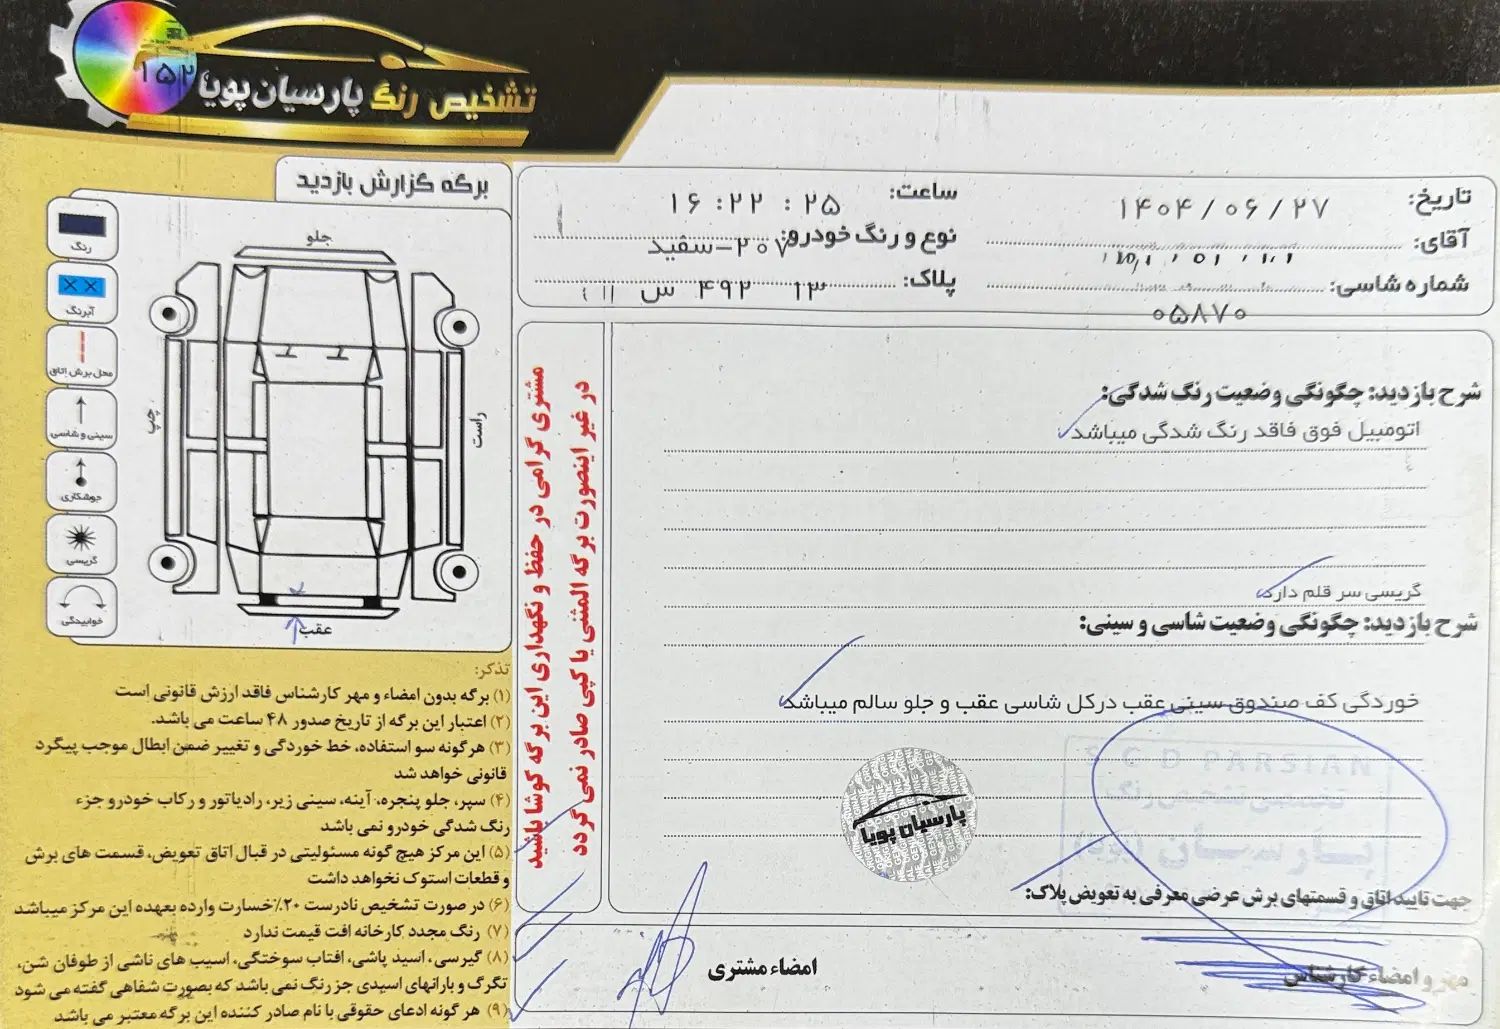 ۱۵۲
تشخیص رنگ پارسیان پویا
برگه گزارش بازدید
تاریخ: ۱۴۰۴/۰۶/۲۷
ساعت: ۱۶:۲۲:۲۵
آقای:
نوع و رنگ خودرو: ۲۰۷-سفید
شماره شاسی:
۰۵۸۷۰
پلاک: ۱۳ ۴۹۲ س ۱۱
رنگ
آبرنگ
محل برش اتاق
سینی و شاسی
جوشکاری
گریسی
خوابیدگی
جلو
چپ
راست
عقب
مشتری گرامی در حفظ و نگهداری این برگه کوشا باشید
در غیر اینصورت برگه المثنی یا کپی صادر نمی گردد
شرح بازدید: چگونگی وضعیت رنگ شدگی:
اتومبیل فوق فاقد رنگ شدگی میباشد
گریسی سر قلم دارد
شرح بازدید: چگونگی وضعیت شاسی و سینی:
خوردگی کف صندوق سینی عقب درکل شاسی عقب و جلو سالم میباشد
S C D PARSIAN
تخصصی تشخیص رنگ
پارسیان (پویا)
پارسیان پویا
جهت تایید اتاق و قسمتهای برش عرضی معرفی به تعویض پلاک:
مهر و امضاء کارشناس
امضاء مشتری
تذکر:
(۱) برگه بدون امضاء و مهر کارشناس فاقد ارزش قانونی است
(۲) اعتبار این برگه از تاریخ صدور ۴۸ ساعت می باشد.
(۳) هرگونه سو استفاده، خط خوردگی و تغییر ضمن ابطال موجب پیگرد
قانونی خواهد شد
(۴) سپر، جلو پنجره، آینه، سینی زیر، رادیاتور و رکاب خودرو جزء
رنگ شدگی خودرو نمی باشد
(۵) این مرکز هیچ گونه مسئولیتی در قبال اتاق تعویض، قسمت های برش
و قطعات استوک نخواهد داشت
(۶) در صورت تشخیص نادرست ۲۰٪ خسارت وارده بعهده این مرکز میباشد
(۷) رنگ مجدد کارخانه افت قیمت ندارد
(۸) گیرسی، اسید پاشی، افتاب سوختگی، اسیب های ناشی از طوفان شن،
تگرگ و بارانهای اسیدی جز رنگ نمی باشد که بصورت شفاهی گفته می شود
(۹) هر گونه ادعای حقوقی با نام صادر کننده این برگه معتبر می باشد